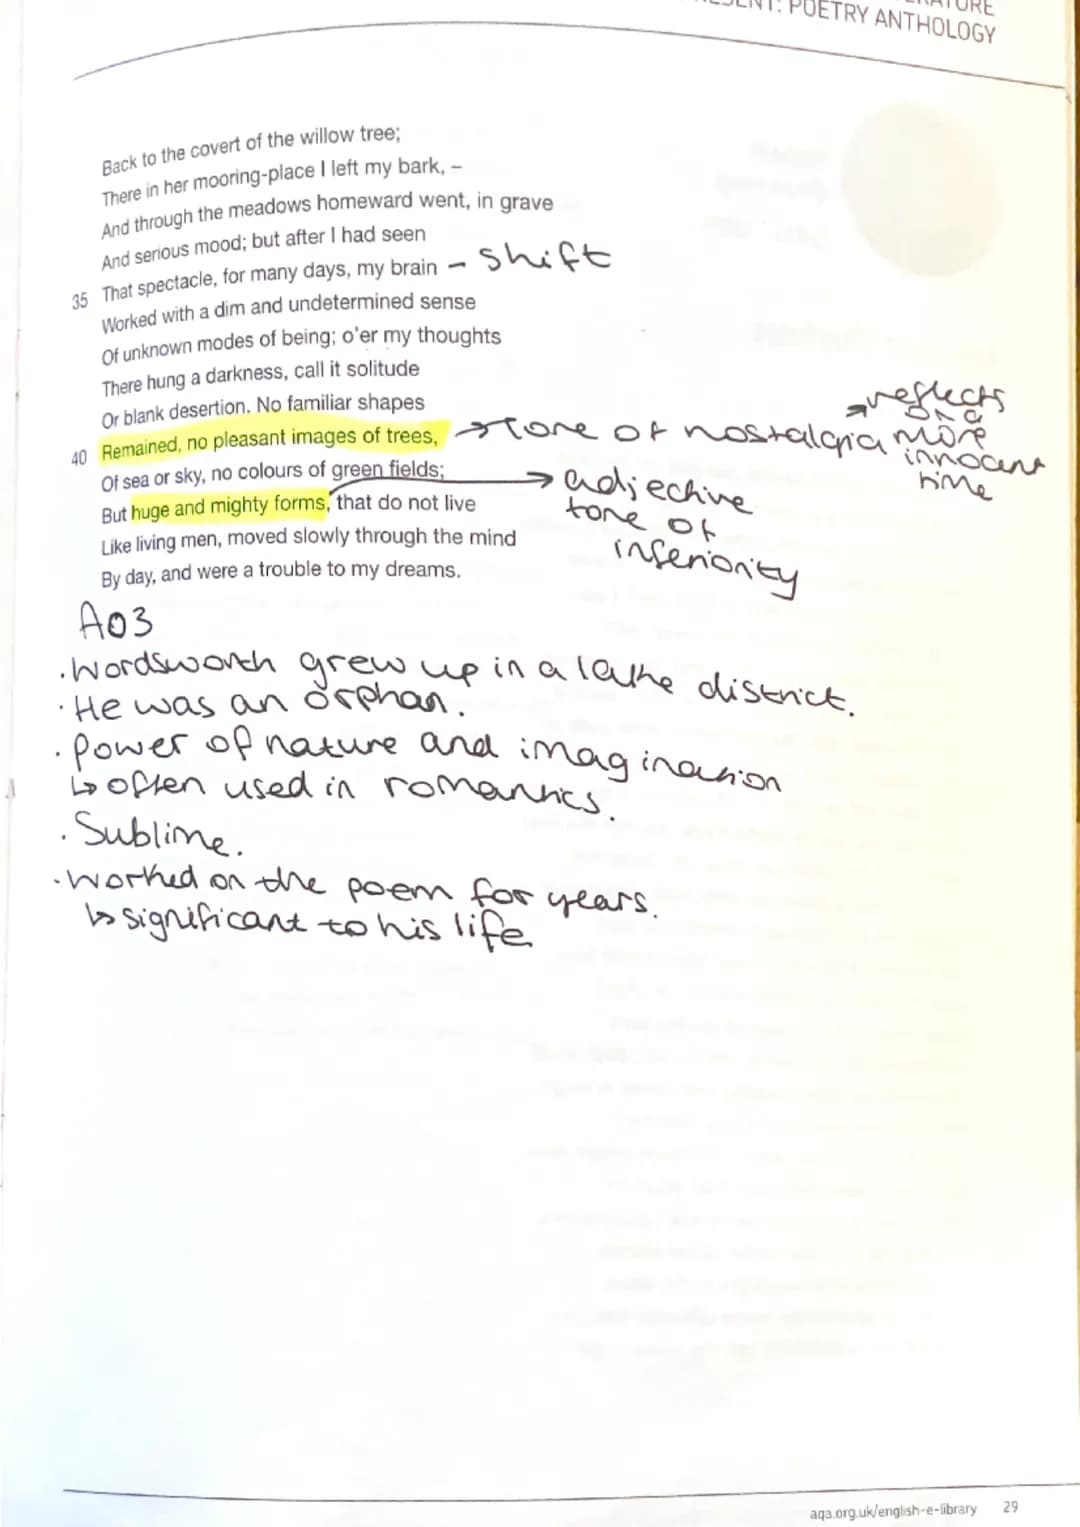 POETRY ANTHOLOGY
Back to the covert of the willow tree;
There in her mooring-place I left my bark, –
And through the meadows homeward went, in grave
And serious mood; but after I had seen
35 That spectacle, for many days, my brain - shift
Worked with a dim and undetermined sense
Of unknown modes of being; o'er my thoughts
There hung a darkness, call it solitude
Or blank desertion. No familiar shapes
40 Remained, no pleasant images of trees, → Tone of nostalgia → reflects on a more innocent time
Of sea or sky, no colours of green fields;
But huge and mighty forms, that do not live → adjective tone of inferiority
Like living men, moved slowly through the mind
By day, and were a trouble to my dreams.
AO3
. Wordsworth grew up in a lake district.
. He was an orphan.
. power of nature and imagination
↳ often used in romantics.
. Sublime.
. Worked on the poem for years.
↳ significant to his life
aqa.org.uk/english-e-library 29